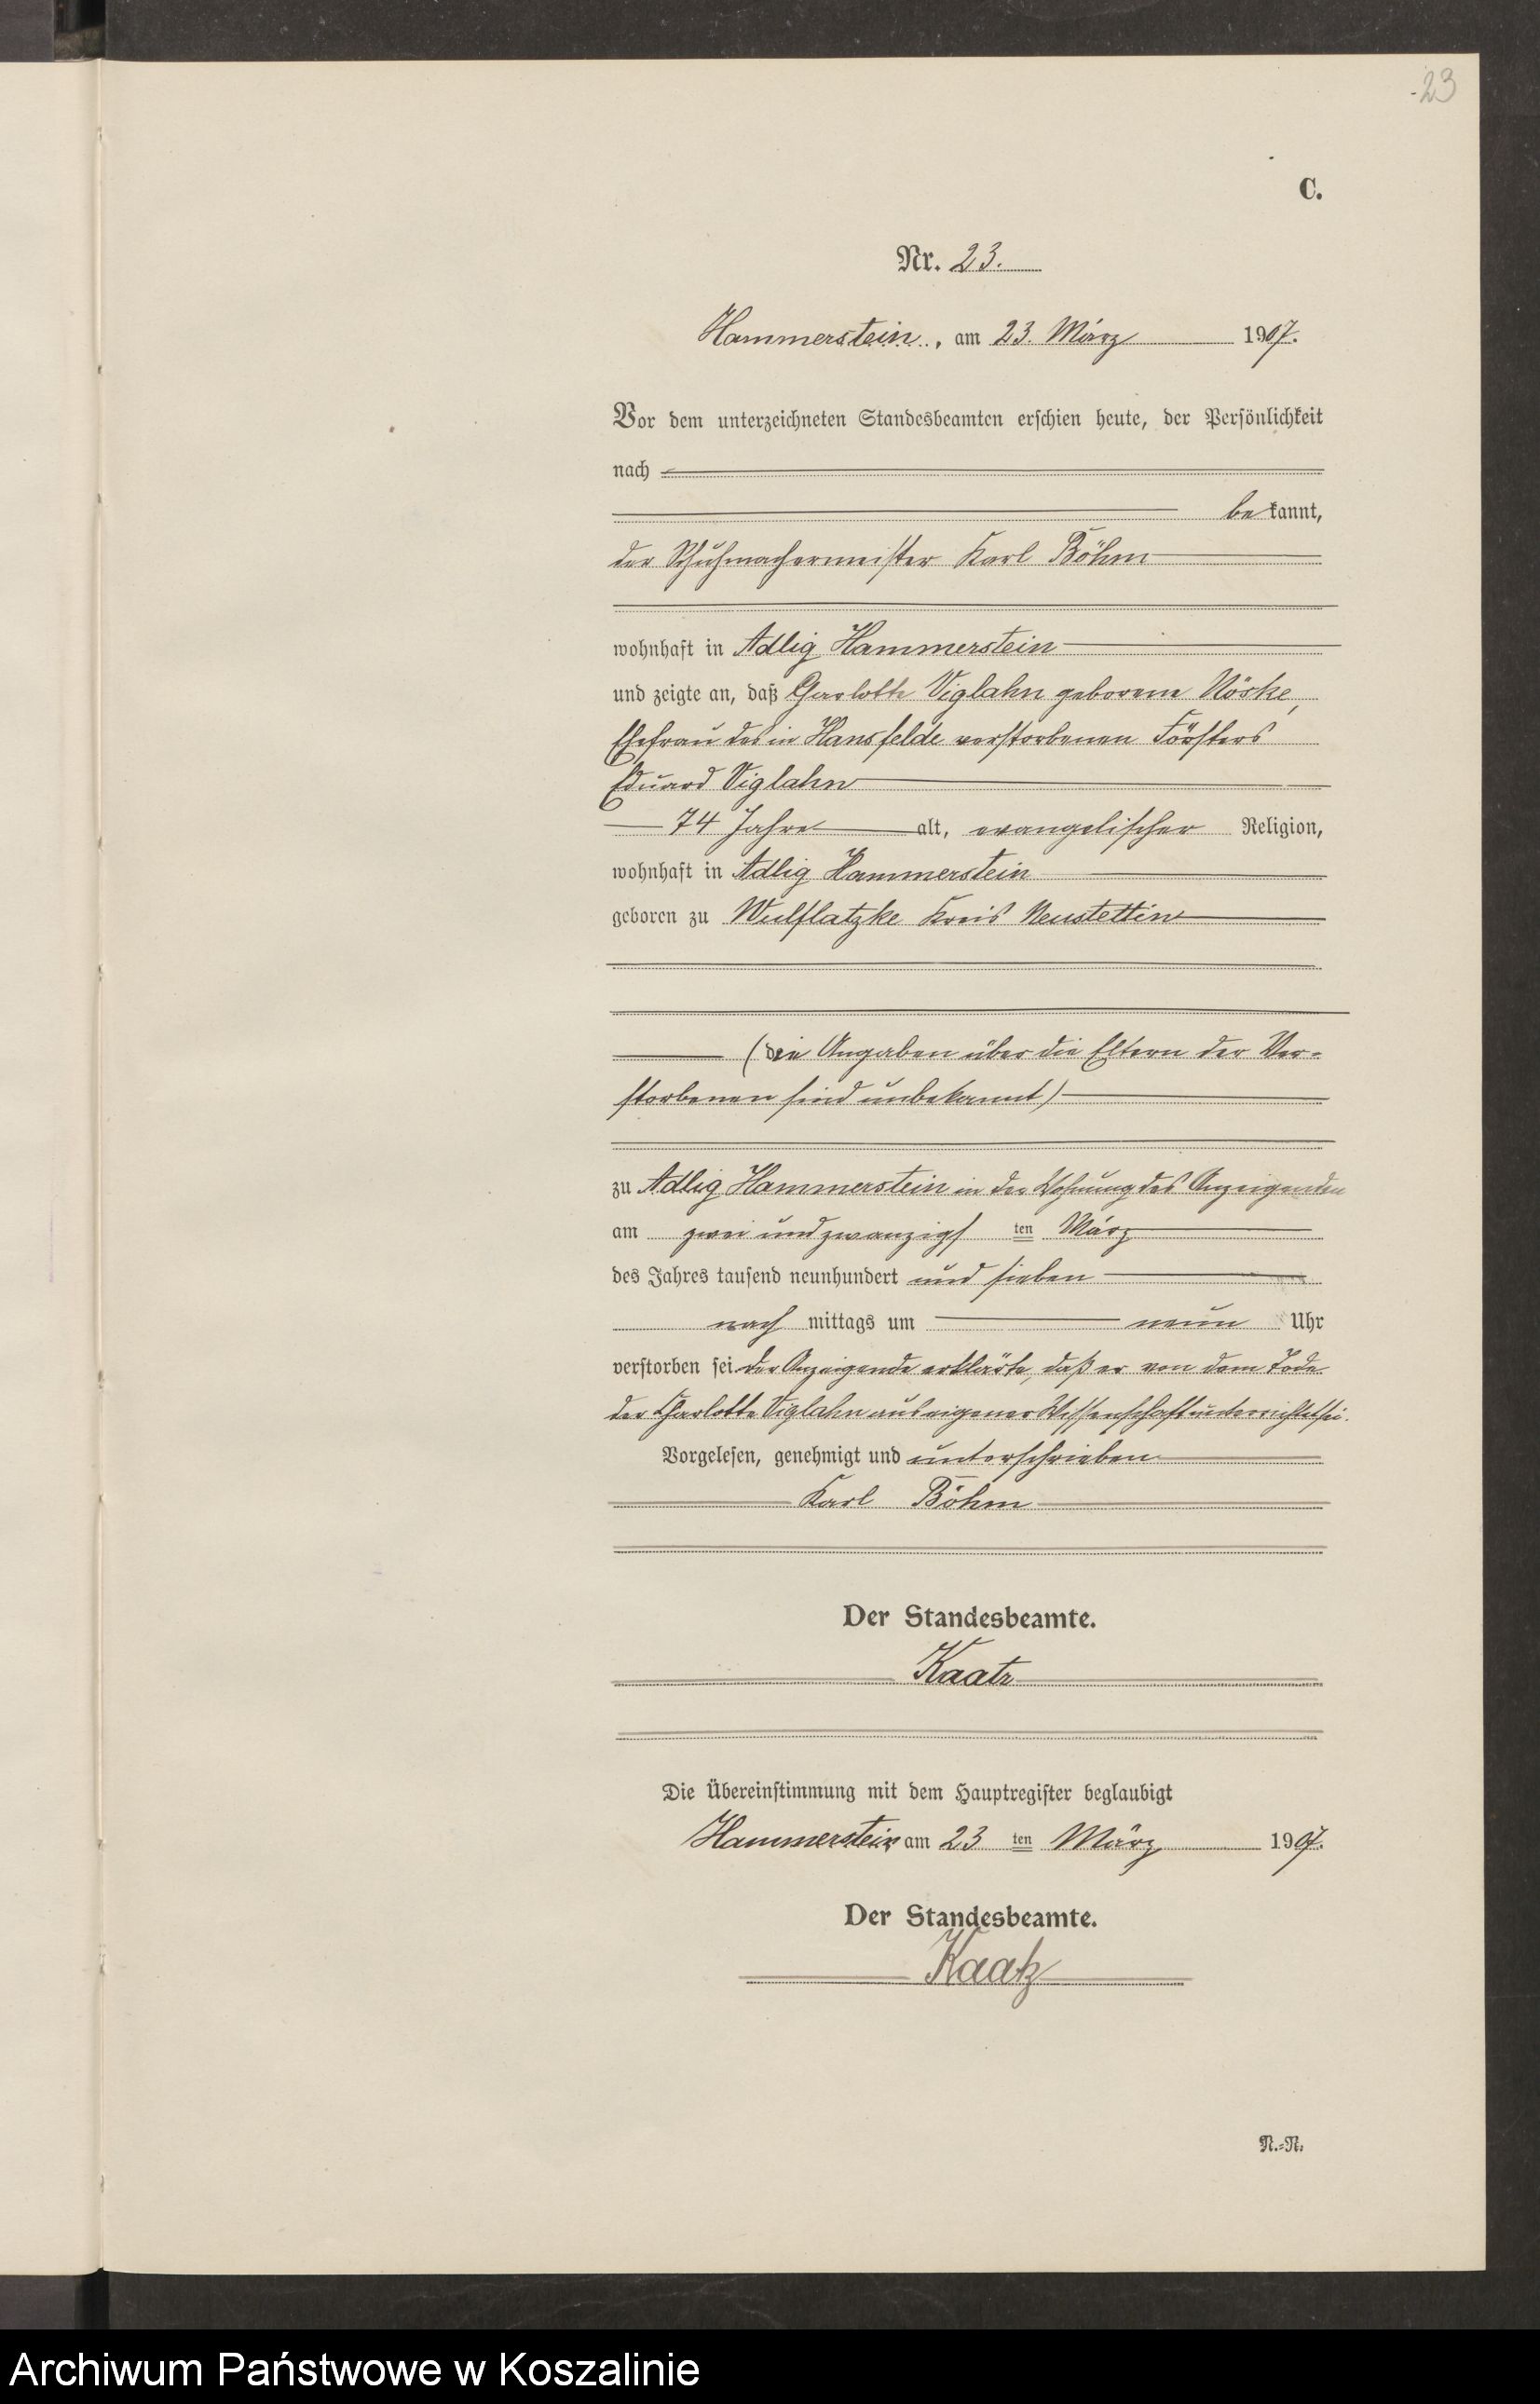 23
C.
Nr. 23.
Hammerstein, am 23. März 1907.
Vor dem unterzeichneten Standesbeamten erschien heute, der Persönlichkeit
nach
bekannt,
der Schuhmachermeister Karl Böhm
wohnhaft in Adlig Hammerstein
und zeigte an, daß Charlotte Viglahn geborene Nöske,
Ehefrau des in Hansfelde verstorbenen Försters
Eduard Viglahn
74 Jahre alt, evangelischer Religion,
wohnhaft in Adlig Hammerstein
geboren zu Wulflatzke Kreis Neustettin
(die Angaben über die Eltern der Ver-
storbenen sind unbekannt)
zu Adlig Hammerstein in der Wohnung des Anzeigenden
am zwei und zwanzigsten März
des Jahres tausend neunhundert und sieben
nach mittags um neun Uhr
verstorben sei. Der Anzeigende erklärte, daß er von dem Tode
der Charlotte Viglahn aus eigener Wissenschaft unterrichtet sei.
Vorgelesen, genehmigt und unterschrieben
Karl Böhm
Der Standesbeamte.
Kaatz
Die Übereinstimmung mit dem Hauptregister beglaubigt
Hammerstein am 23ten März 1907.
Der Standesbeamte.
Kaatz
N.-N.
Archiwum Państwowe w Koszalinie